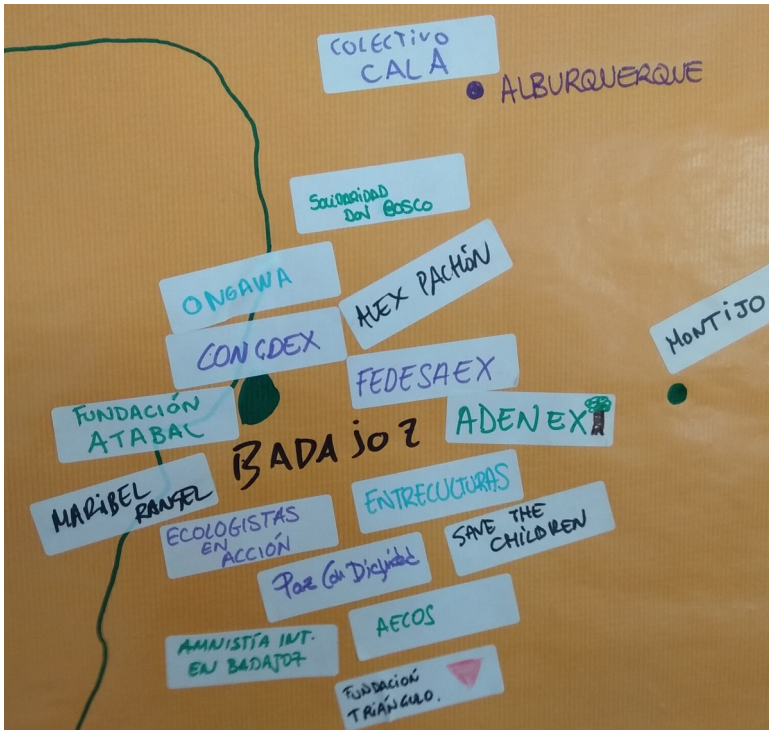 COLECTIVO
CALA
ALBURQUERQUE
SOLIDARIDAD
DON BOSCO
ONGAWA
ALEX PACHÓN
MONTIJO
CONGDEX
FEDESAEX
FUNDACIÓN
ATABAL
ADENEX
BADAJOZ
MARIBEL
RANGEL
ENTRECULTURAS
ECOLOGISTAS
EN
ACCIÓN
SAVE THE
CHILDREN
Paz Con Dignidad
AECOS
AMNISTÍA INT.
EN BADAJOZ
FUNDACIÓN
TRIÁNGULO.